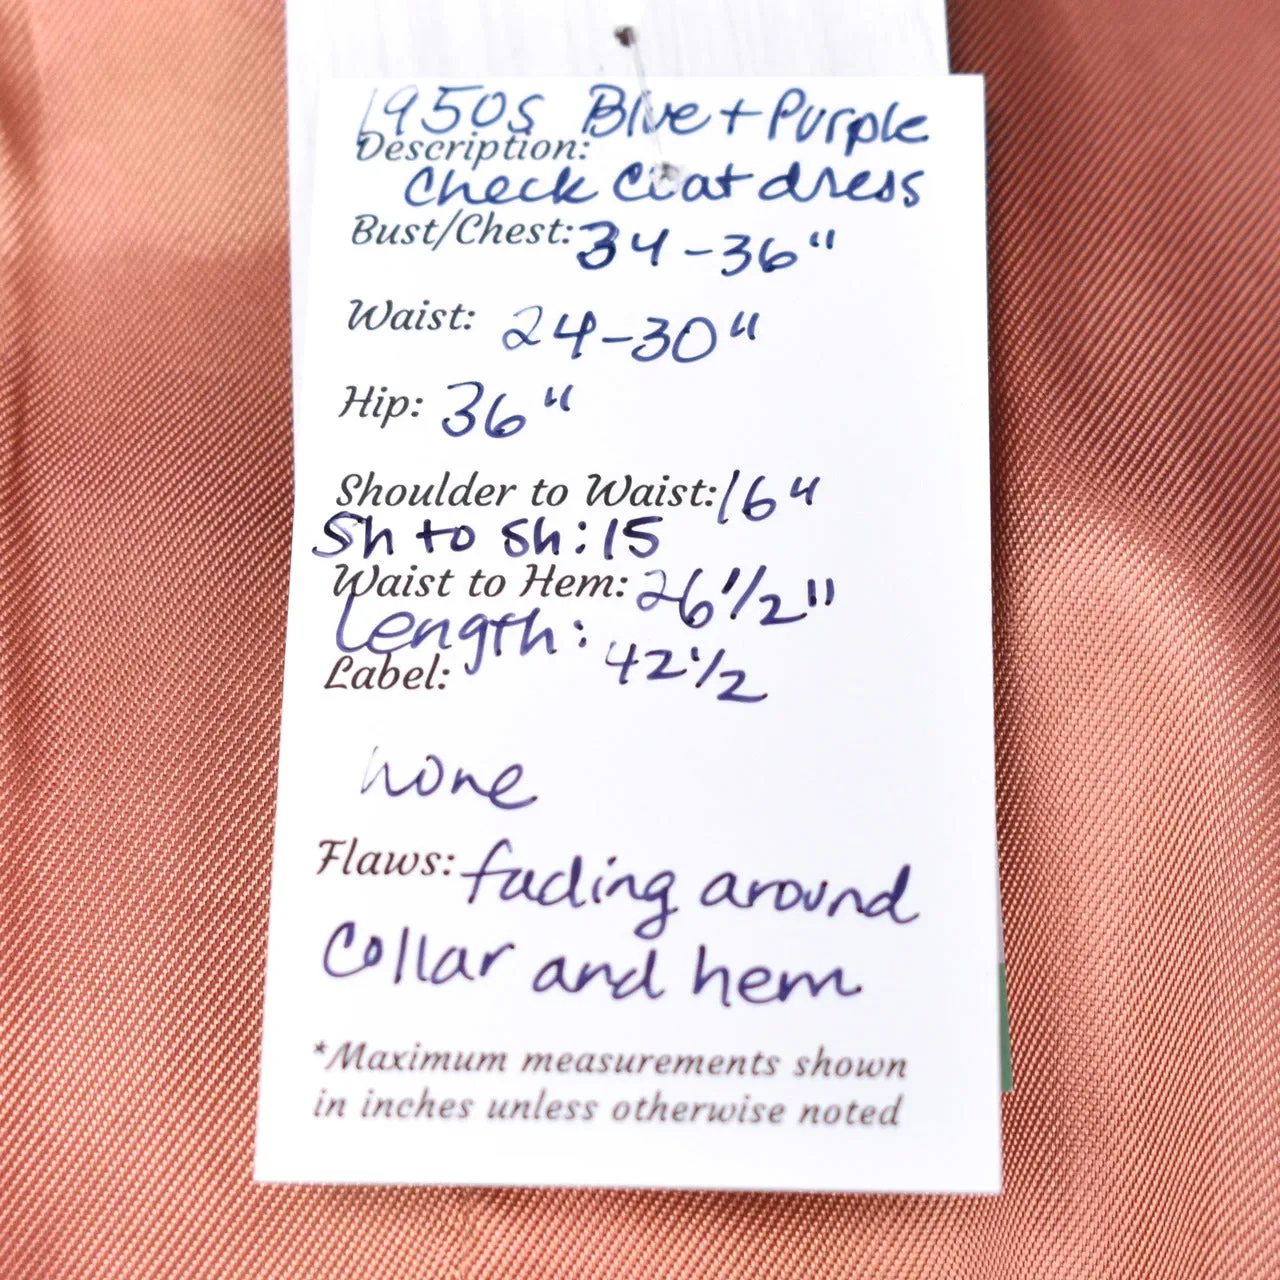 1950s Blue + Purple
Description:
Check Coat dress
Bust/Chest: 34-36"
Waist: 24-30"
Hip: 36"
Shoulder to Waist: 16"
Sh to Sh: 15
Waist to Hem: 26 1/2"
Length: 42 1/2
Label:
none
Flaws: fading around
Collar and hem
*Maximum measurements shown
in inches unless otherwise noted